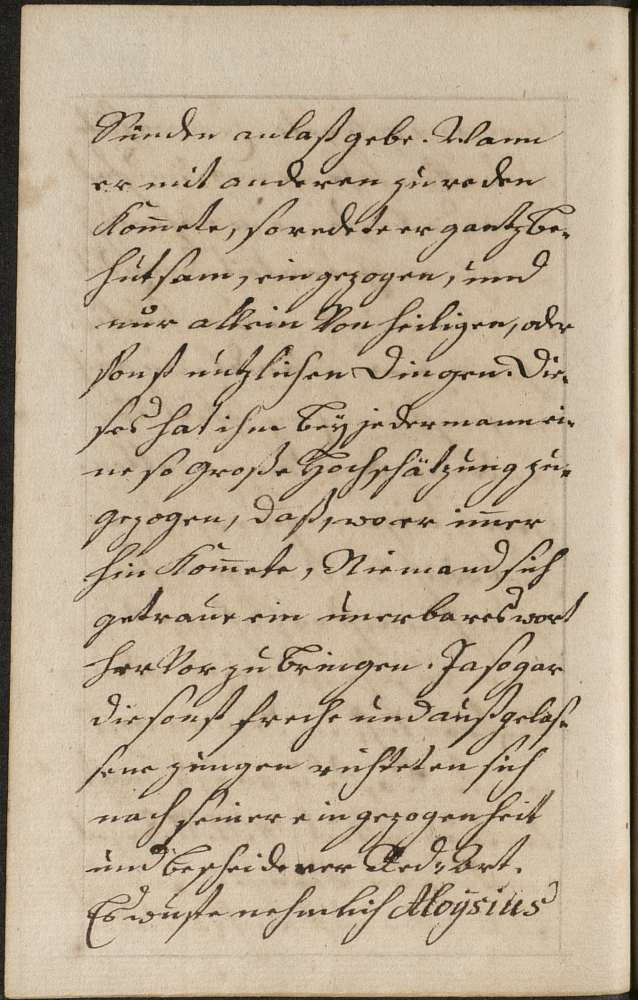 Sünden anlaß gebe. Wann
er mit anderen zu reden
kom̄ete, so redete er gantz be=
hutsam, eingezogen, und
nur allein von heiligen, oder
sonst nutzlichen Dingen. Die=
ses hat ihm beÿ jederman ei=
ne so große Hochschätzung zu=
gezogen, daß, wo er im̄er
hin kom̄ete, Niemand sich
getraue ein unerbares wort
hervor zu bringen. Ja sogar
die sonst freche und außgelas=
sene zungen richteten sich
nach seiner eingezogenheit
und bescheidener Red=Art.
Es wuste nehmlich Aloÿsius